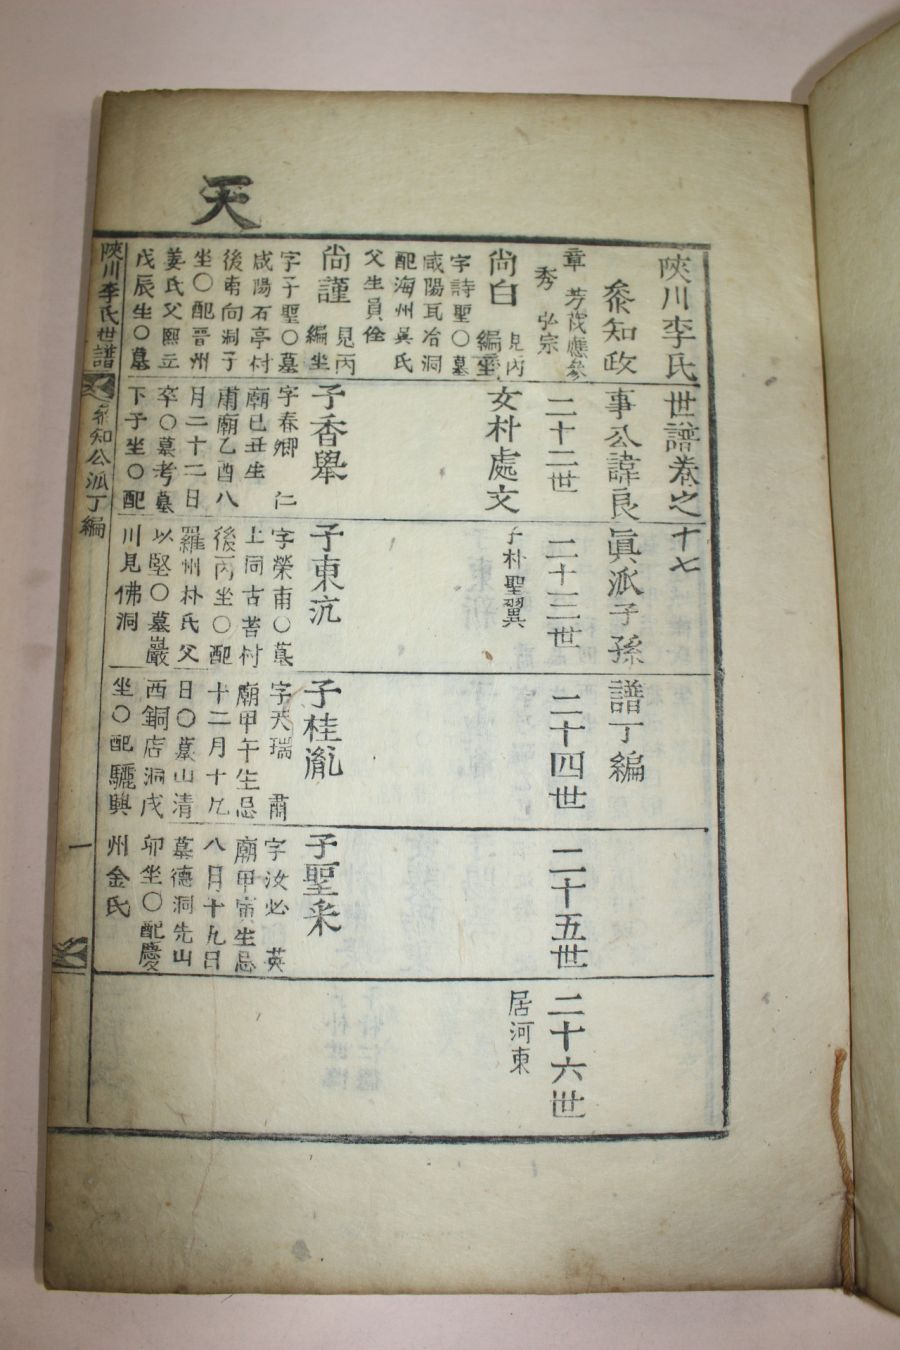 天
陜川李氏世譜卷之十七
叅知政事公諱良眞派子孫譜丁編
章
秀
芳茂應參
弘宗
二十二世
二十三世
二十四世
二十五世
二十六世
尚白
見丙
編坐
字詩聖〇墓
咸陽瓦冶洞
配海州吳氏
父生員佺
女朴處文
子朴聖翼
居河東
尚謹
見丙
編坐
字子聖〇墓
咸陽石亭村
後甫向洞子
坐〇配晉州
姜氏父熙立
戊辰生〇墓
子香舉
字春卿 仁
廟己丑生
肅廟乙酉八
月二十二日
卒〇墓考墓
下子坐〇配
子東沆
字榮甫〇墓
上同古苔村
後丙坐〇配
羅州林氏父
以堅〇墓巖
川見佛洞
子桂胤
字天瑞 肅
廟甲午生忌
十二月十九
日〇墓山清
西銅店洞戌
坐〇配驪興
子聖釆
字汝必 英
廟甲寅生忌
八月十九日
墓德洞先山
卯坐〇配慶
州金氏
陜川李氏世譜
叅知公派丁編
一